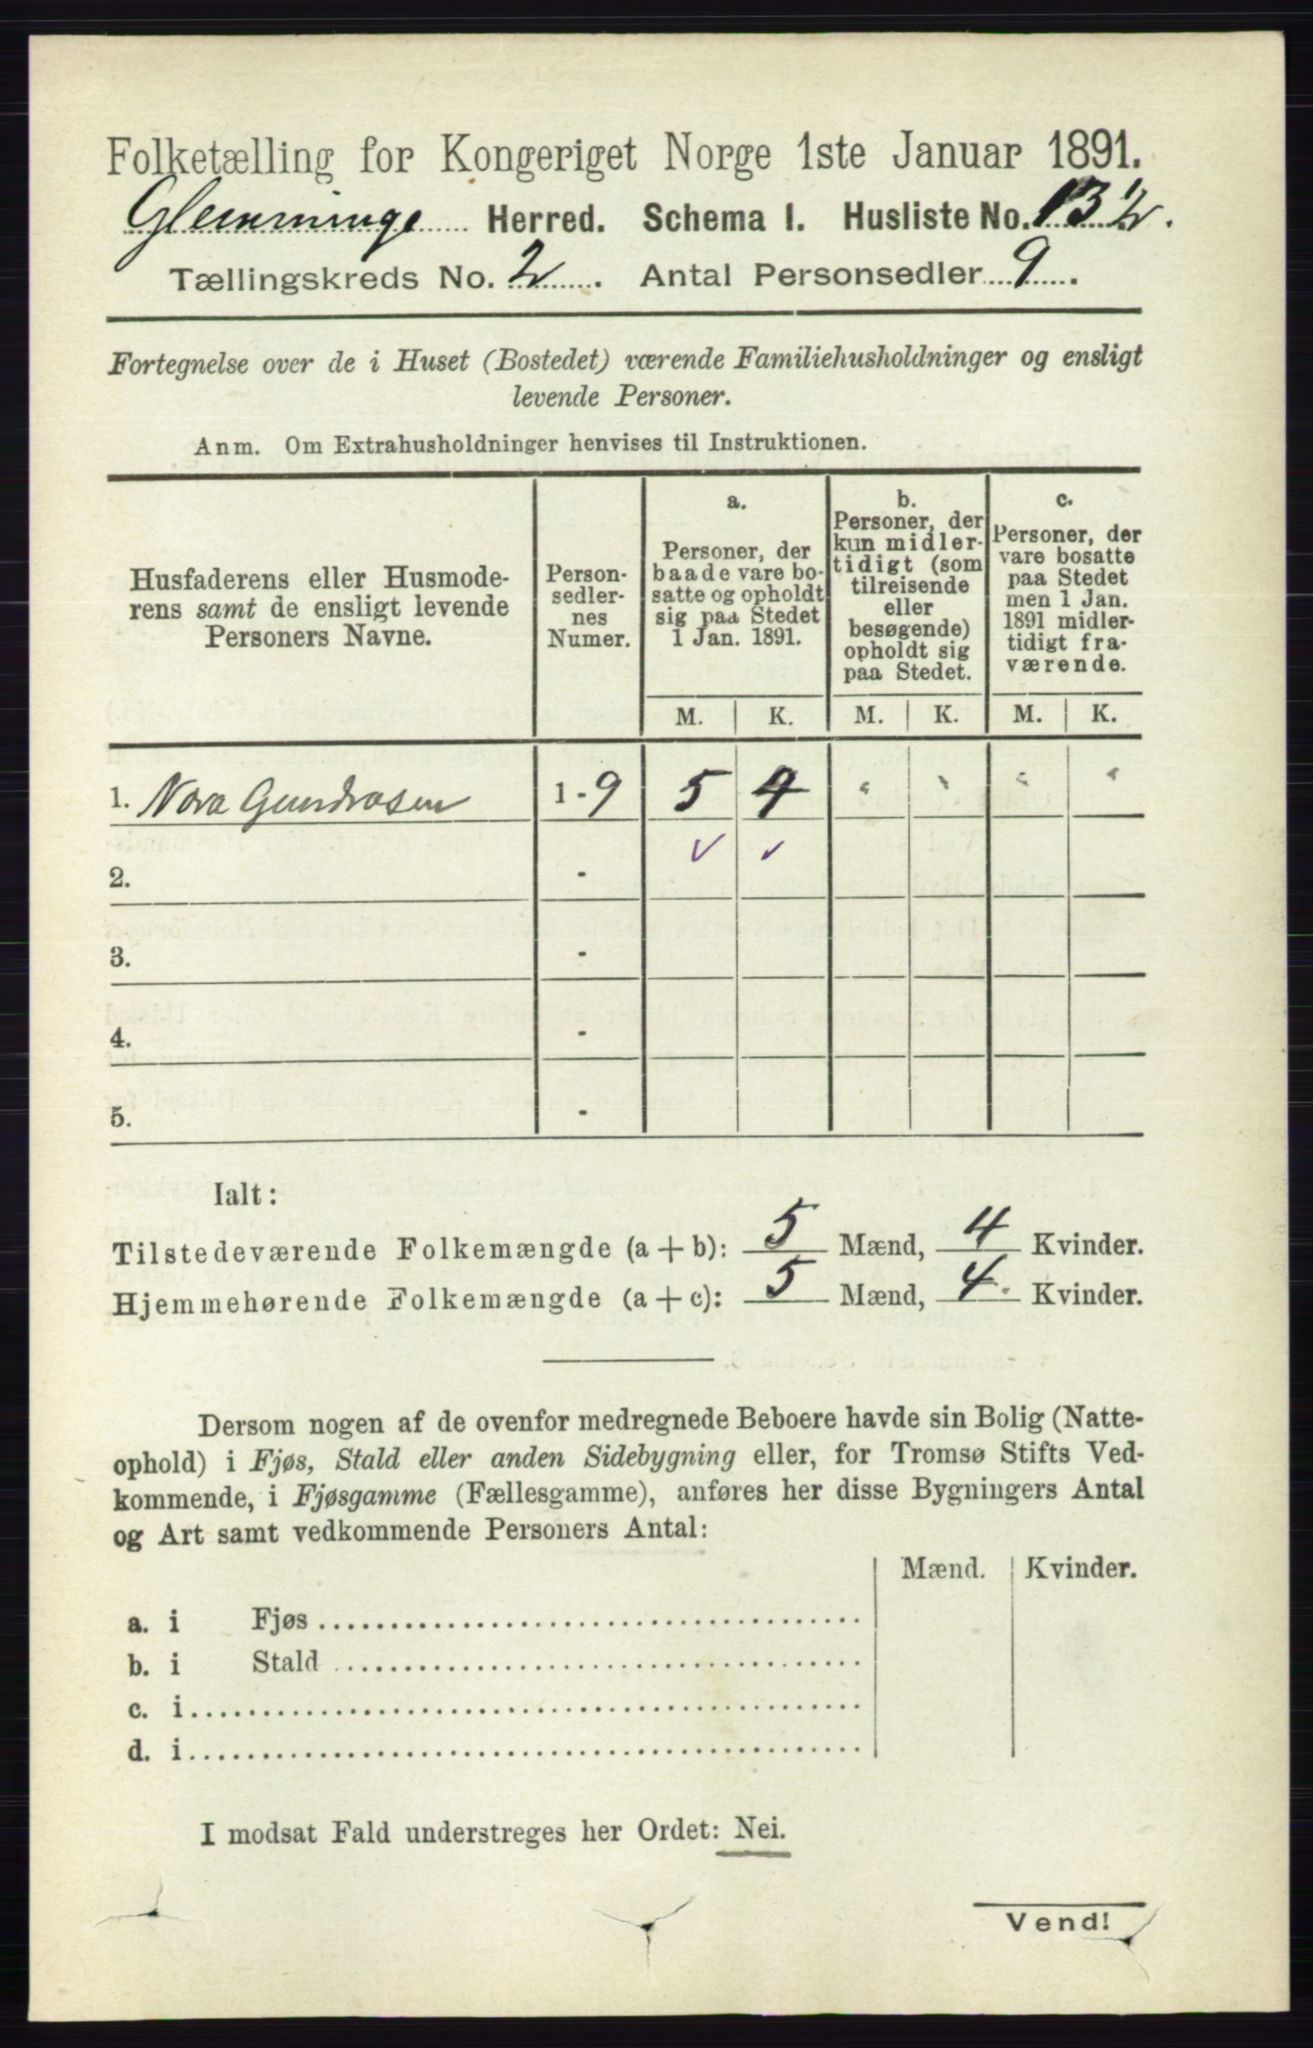 Folketælling for Kongeriget Norge 1ste Januar 1891.
Glemminge Herred. Schema I. Husliste No. 132.
Tællingskreds No. 2. Antal Personsedler 9.
Fortegnelse over de i Huset (Bostedet) værende Familiehusholdninger og ensligt
levende Personer.
Anm. Om Extrahusholdninger henvises til Instruktionen.
Husfaderens eller Husmode-
rens samt de ensligt levende
Personers Navne.
Person-
sedler-
nes
Numer.
a.
Personer, der
baade vare bo-
satte og opholdt
sig paa Stedet
1 Jan. 1891.
b.
Personer, der
kun midler-
tidigt (som
tilreisende
eller
besøgende)
opholdt sig
paa Stedet.
c.
Personer, der
vare bosatte
paa Stedet
men 1 Jan.
1891 midler-
tidigt fra-
værende.
M. K. M. K. M. K.
1. Nora Gundrosen 1 - 9 5 4 " " " "
2. -
3. -
4. -
5. -
Ialt:
Tilstedeværende Folkemængde (a + b): 5 Mænd, 4 Kvinder.
Hjemmehørende Folkemængde (a + c): 5 Mænd, 4 Kvinder.
Dersom nogen af de ovenfor medregnede Beboere havde sin Bolig (Natte-
ophold) i Fjøs, Stald eller anden Sidebygning eller, for Tromsø Stifts Ved-
kommende, i Fjøsgamme (Fællesgamme), anføres her disse Bygningers Antal
og Art samt vedkommende Personers Antal:
Mænd. Kvinder.
a. i Fjøs
b. i Stald
c. i
d. i
I modsat Fald understreges her Ordet: Nei.
Vend!